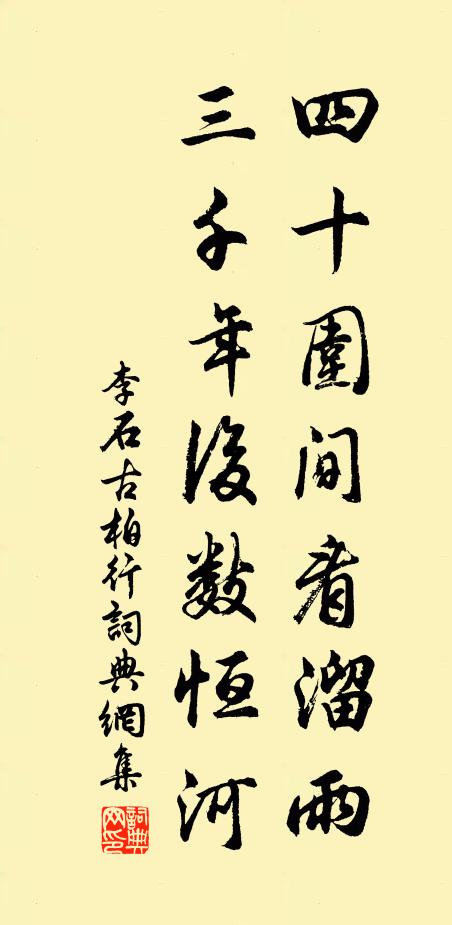 四十圍間看溜雨
三千年後数恒河
李石古柏行詞典網集
詞典网印